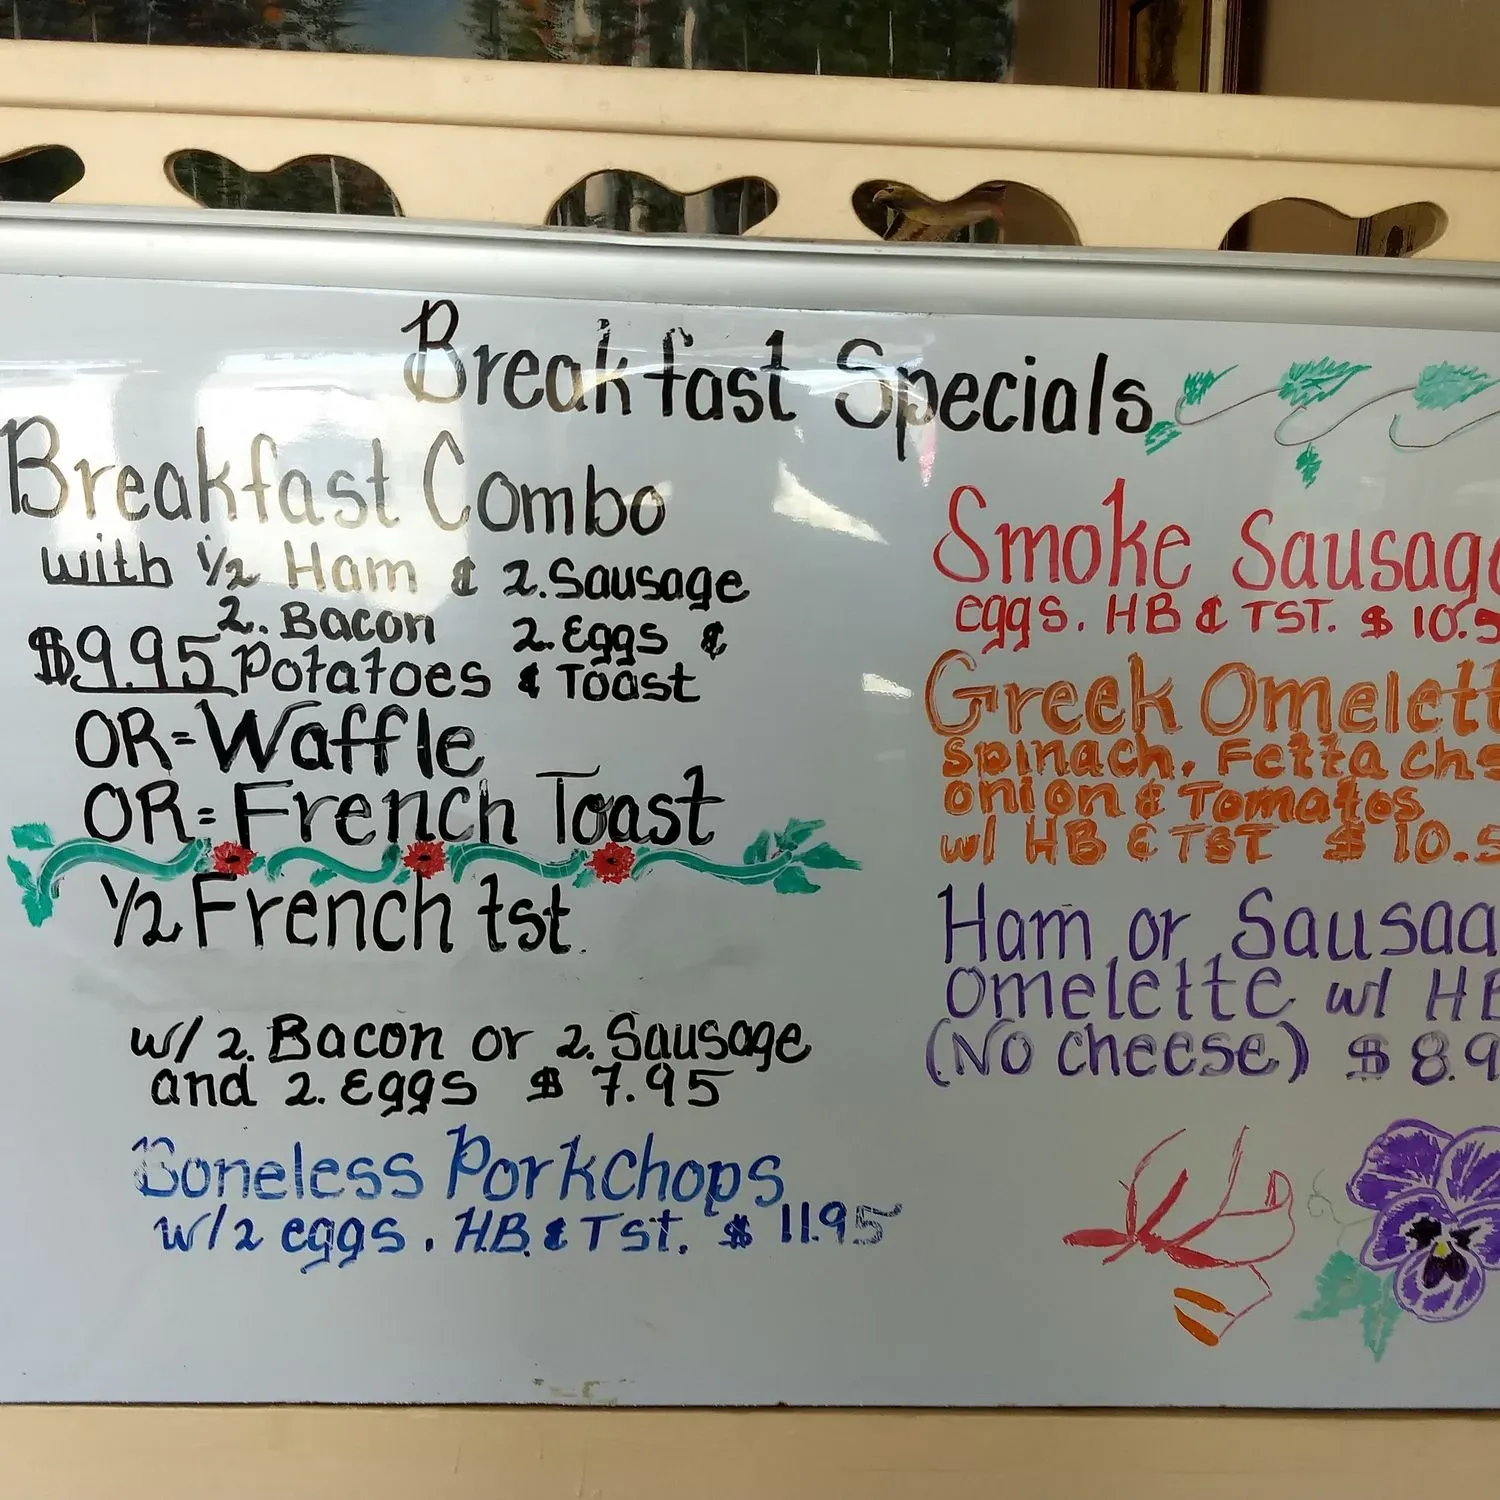 Breakfast Specials
Breakfast Combo
with 1/2 Ham & 2. Sausage
2. Bacon 2. Eggs &
$9.95 Potatoes & Toast
OR = Waffle
OR = French Toast
1/2 French tst.
w/ 2. Bacon or 2. Sausage
and 2. Eggs $ 7.95
Boneless Porkchops
w/2 eggs. H.B. & Tst. $ 11.95
Smoke Sausag
eggs. HB & TST. $ 10.
Greek Omelett
Spinach, Fetta Ch
onion & Tomatos
w/ HB & TST $ 10.
Ham or Sausag
Omelette w/ HB
(No cheese) $ 8.9